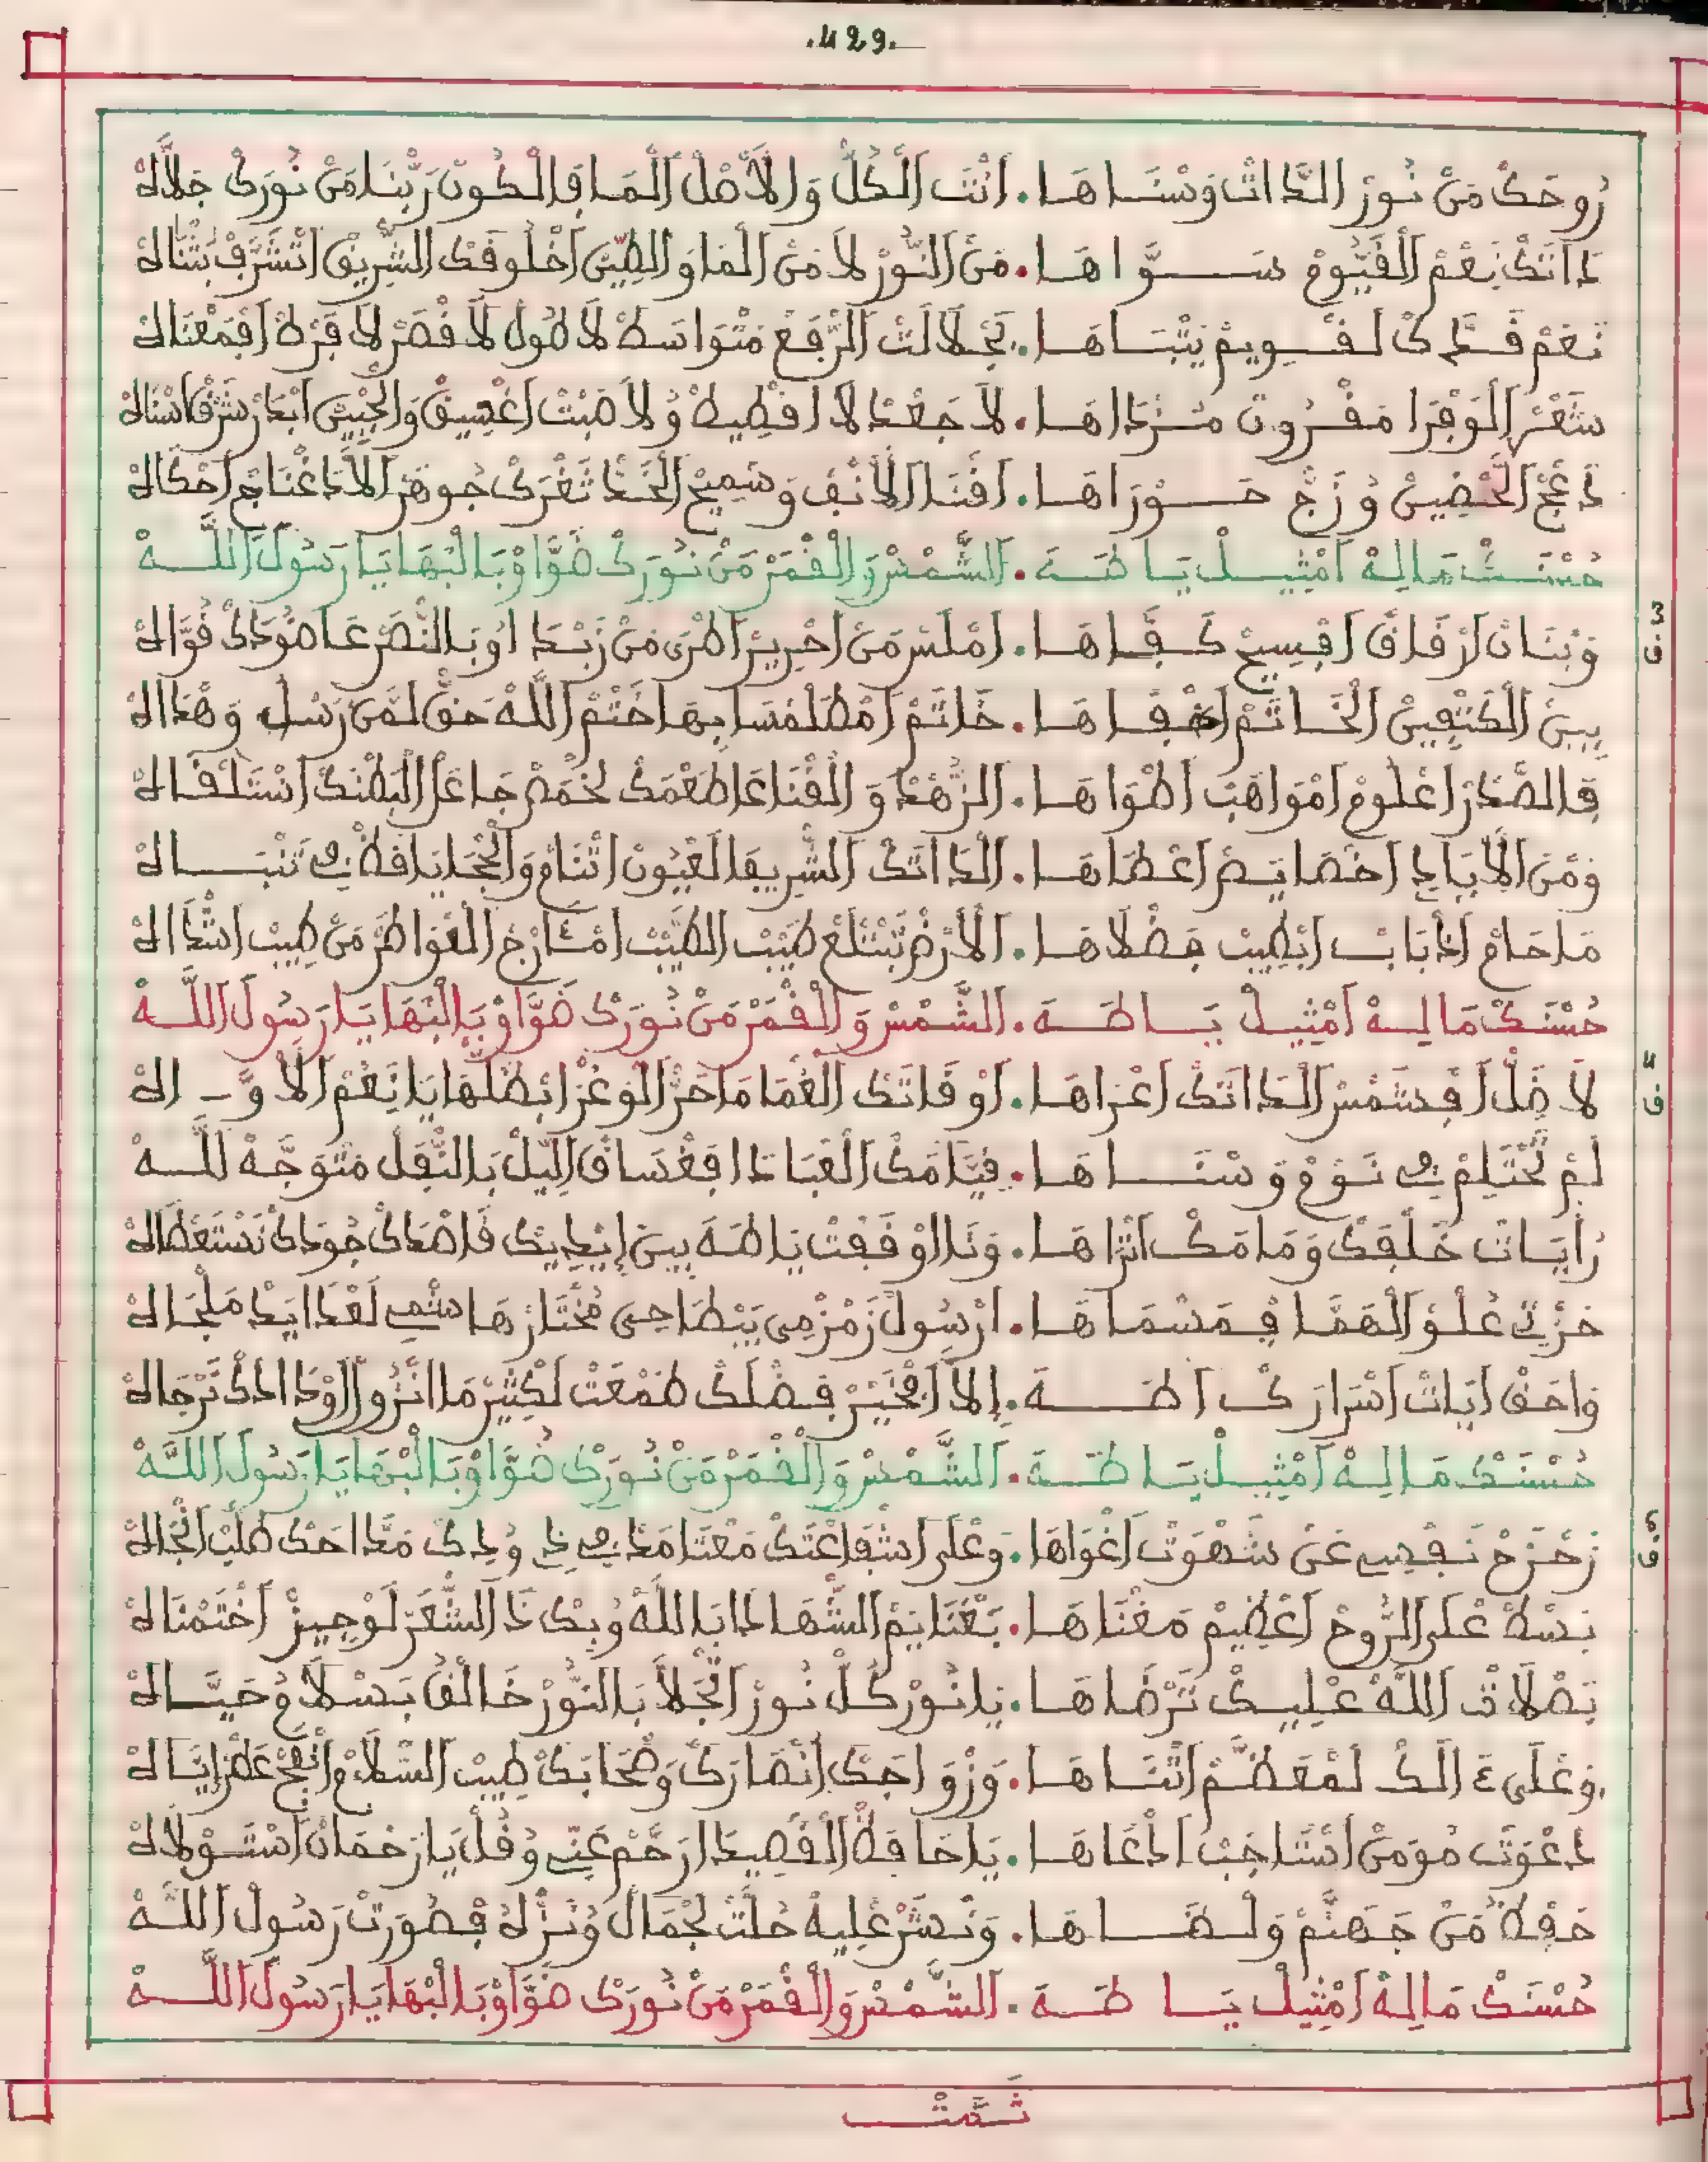 .429.
رُوحَكْ مَنْ نُورْ الذَّاتْ وَسْنَاهَا . اَنْتَ الْكُلّْ وَالاَصْلْ الْمَا فِالْكُونْ رَبّْنَا مَنْ نُورَكْ جَلاَّلهْ
ذَاتَكْ نِعْمْ الْقَيُّومْ سَوَّاهَا . مَنْ النُّورْ لاَ مَنْ الْمَا وَالطِّينْ اَخْلُوقَكْ الشّْرِيقْ اَتْشَرَّفْ بَثْنَالهْ
نَعْمْ قَدَّكْ لَقْوِيمْ يَتْبَاهَا . بَجْلاَلَتْ الرّْفَعْ مَتْوَاسَطْ لاَ طُولْ لاَ قْصَرْ لاَ فَرْطْ اَفْمَعْنَالهْ
شَعْرْ الْوَفْرَا مَفْرُوقْ مَرْدَاهَا . لاَ جَعْدْ لاَ اقْطِيطْ وُلاَ صَبْتْ اَغْسِيقْ وَالْجْبِينْ اَبْدَرْ شَرْقْ اَسْنَالهْ
دَعْجْ الْحْضِينْ وُزَجّْ حَوْرَاهَا . اَقْنَا الاَنْفْ وَسْمِيحْ الْخَدّْ ثَغْرَكْ جُوهَرْ الاَدْعْنَاجْ اَحْكَالهْ
حُسْنَكْ مَالِهْ اَمْثِيلْ يَا طَهَ . الشَّمْسْ وَالْقْمَرْ مَنْ نُورَكْ ضَوَّاوْ بَالْبْهَا يَا رَسُولَ اللهْ
3
ف
وَبْنَانْ اَرْقَاقْ اَفْسِيحْ كَفَّاهَا . اَمْلَسْ مَنْ اَحْرِيرْ اَطْرَى مَنْ زَبْدَ اُوبَالنّْصَرْ عَاضُودَكْ قُوَّالهْ
بِينْ الْكَتْفِينْ الْخَاتَمْ اَقْفَاهَا . خَاتَمْ اَمْطَلْمْسَا بِهَا خَتْمْ اللهْ حَقّْ لَمَنْ رَسْلْ وَهْدَالهْ
فِالصَّدْرْ اَعْلُومْ اَمْوَاهَبْ اَطْوَاهَا . الزُّهْدْ وَالْقْنَاعَا طَعْمَكْ لَخْمَصْ جَاعْ الْبَطْنَكْ اَسْتَلْقَالهْ
وَمَنْ الاَيَادِ اَخْصَايَصْ اَعْطَاهَا . الْذَاتَكْ الشّْرِيفَا لَعْيُونْ اَتْنَامْ وَالْحْجَا يَاقَظْ فِي تَنْبَالهْ
مَا حَامْ اَذْبَابْ اَبْطِيبْ فَضْلاَهَا . الاَرْضْ تَبْتْلَعْ طَيَبْ الطَّيَبْ اَمْئَارْجْ الْعْوَاطَرْ مَنْ طِيبْ اَشْذَالهْ
حُسْنَكْ مَالِهْ اَمْثِيلْ يَا طَهَ . الشَّمْسْ وَالْقْمَرْ مَنْ نُورَكْ ضَوَّاوْ بَالْبْهَا يَا رَسُولَ اللهْ
4
ف
لاَ ظَلّْ اَفْشَمْسْ الْذَاتَكْ اَعْرَاهَا . اَوْقَاتَكْ الْغْمَامَا حَرّْ الْوغْرْ ابْظَلّْهَا يَا نَعْمْ الاَوَّالهْ
لَمْ تَحْتَلِمْ فِي نَوْمْ وَسْنَاهَا . قِيَّامَكْ الْعْبَادَا افْغْسَاقْ اللِّيلْ بَالنّْفَلْ مَتْوَجَّهْ للهْ
رَايَاتْ خَلْقَكْ وَمَامَكْ اَثْرَاهَا . وَنَا اوْقَفْتْ يَا طَهَ بِينْ اِيدِيكْ قَاصْدَكْ جُودَكْ نَسْتَعْطَالهْ
حَزْنِي عْلُوّْ الْهَمَّا فْمَسْمَاهَا . ارْسُولْ زَمْزْمِي يَبْطَاحِي مُخْتَارْ هَاشْمِي لَعْدَا يَدْ مَلْجَالهْ
وَاحَقّْ اَيَاتْ اَسْرَارَكْ اَطَهَ . اِلاَّ اَمْحَيَّرْ فَضْلَكْ طَمْعَتْ لَكْثِيرْ مَا اَنْزُورْ اَوْدَادَكْ نَرْجَالهْ
حُسْنَكْ مَالِهْ اَمْثِيلْ يَا طَهَ . الشَّمْسْ وَالْقْمَرْ مَنْ نُورَكْ ضَوَّاوْ بَالْبْهَا يَا رَسُولَ اللهْ
5
ف
زَحْزَحْ نَفْسِي عَنْ شَهْوَتْ اَغْوَاهَا . وَعْلَى اَشْفَاعْتَكْ مَعْتَامَدْ فِي ذِ وُدِكْ مَدَّاحَكْ طْلَبْ اَنْجَالهْ
بَسْطْ عْلَى الرُّوحْ اَعْظِيمْ مَغْنَاهَا . بَغْنَايَمْ الشّْهَادَا بَاللهْ وُبِكْ ذَا الشّْعَرْ لَوْجِيزْ اَخْتَمْنَالهْ
بَصْلاَةْ اللهْ عْلِيكْ تَرْضَاهَا . يَا نُورْ كُلّْ نُورْ اَنْجْلاَ بَالنُّورْ خَالْقُ بَسْلاَمُ حَيَّالهْ
وَعْلَى ءَالَكْ لَمْعَظَّمْ اَثْنَاهَا . وَزْوَاجَكْ اَنْصَارَكْ وَصْحَابَكْ طِيبْ السّْلاَمْ اَنْفَحْ عَطْرْ اِيَّالهْ
دَعْوَتْ مُومَنْ اَسْتَاجَبْ اَدْعَاهَا . يَا حَافَظْ الْقْصِيدَا رَحَّمْ عَنِّي وُقُلْ يَا رَحْمَانْ اَسْتَوْلاَلهْ
حَفْظُ مَنْ جَهَنَّمْ وَلْضَاهَا . وَنْشَرْ عْلِيهْ حُلَّتْ لَجْمَالْ وُنَزّْلُ فْصُورَتْ رَسُولَ اللهْ
حُسْنَكْ مَالِهْ اَمْثِيلْ يَا طَهَ . الشَّمْسْ وَالْقْمَرْ مَنْ نُورَكْ ضَوَّاوْ بَالْبْهَا يَا رَسُولَ اللهْ
تَمَّتْ